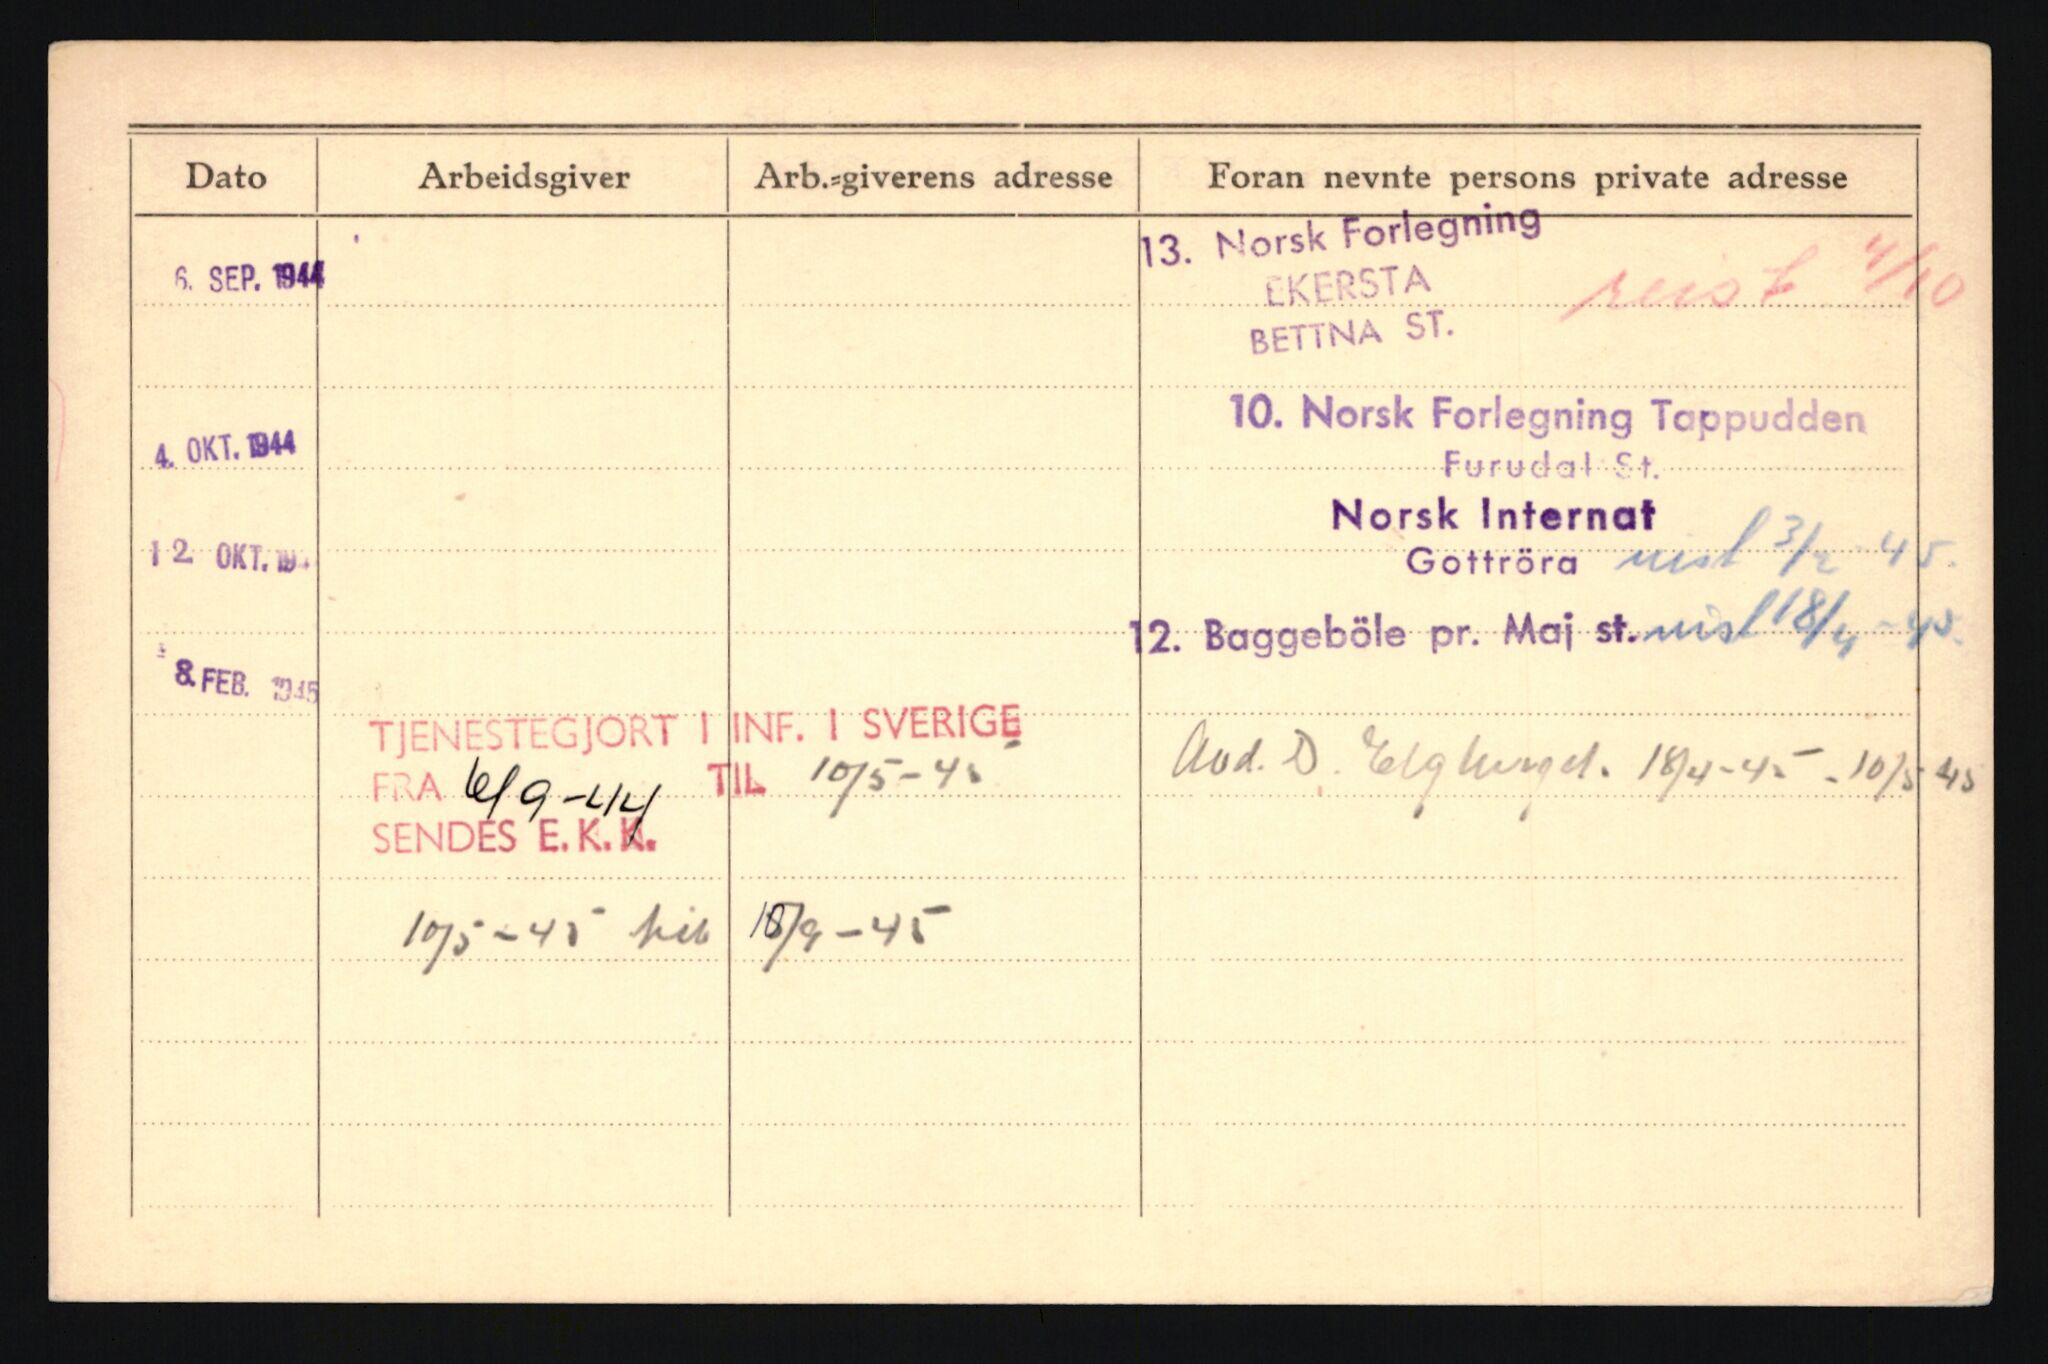 Dato Arbeidsgiver Arb.=giverens adresse Foran nevnte persons private adresse
6. SEP. 1944 13. Norsk Forlegning
EKERSTA reist 4/10
BETTNA ST.
4. OKT. 1944 10. Norsk Forlegning Tappudden
Furudal St.
12. OKT. 194 Norsk Internat
Gottröra reist 3/2 - 45.
12. Baggeböle pr. Maj st. reist 18/4 - 45.
8. FEB. 1945
TJENESTEGJORT I INF. I SVERIGE
FRA 6/9-44 TIL 10/5-45
Avd. D. 18/4-45 - 10/5 45
SENDES E. K. K.
10/5-45 18/9-45